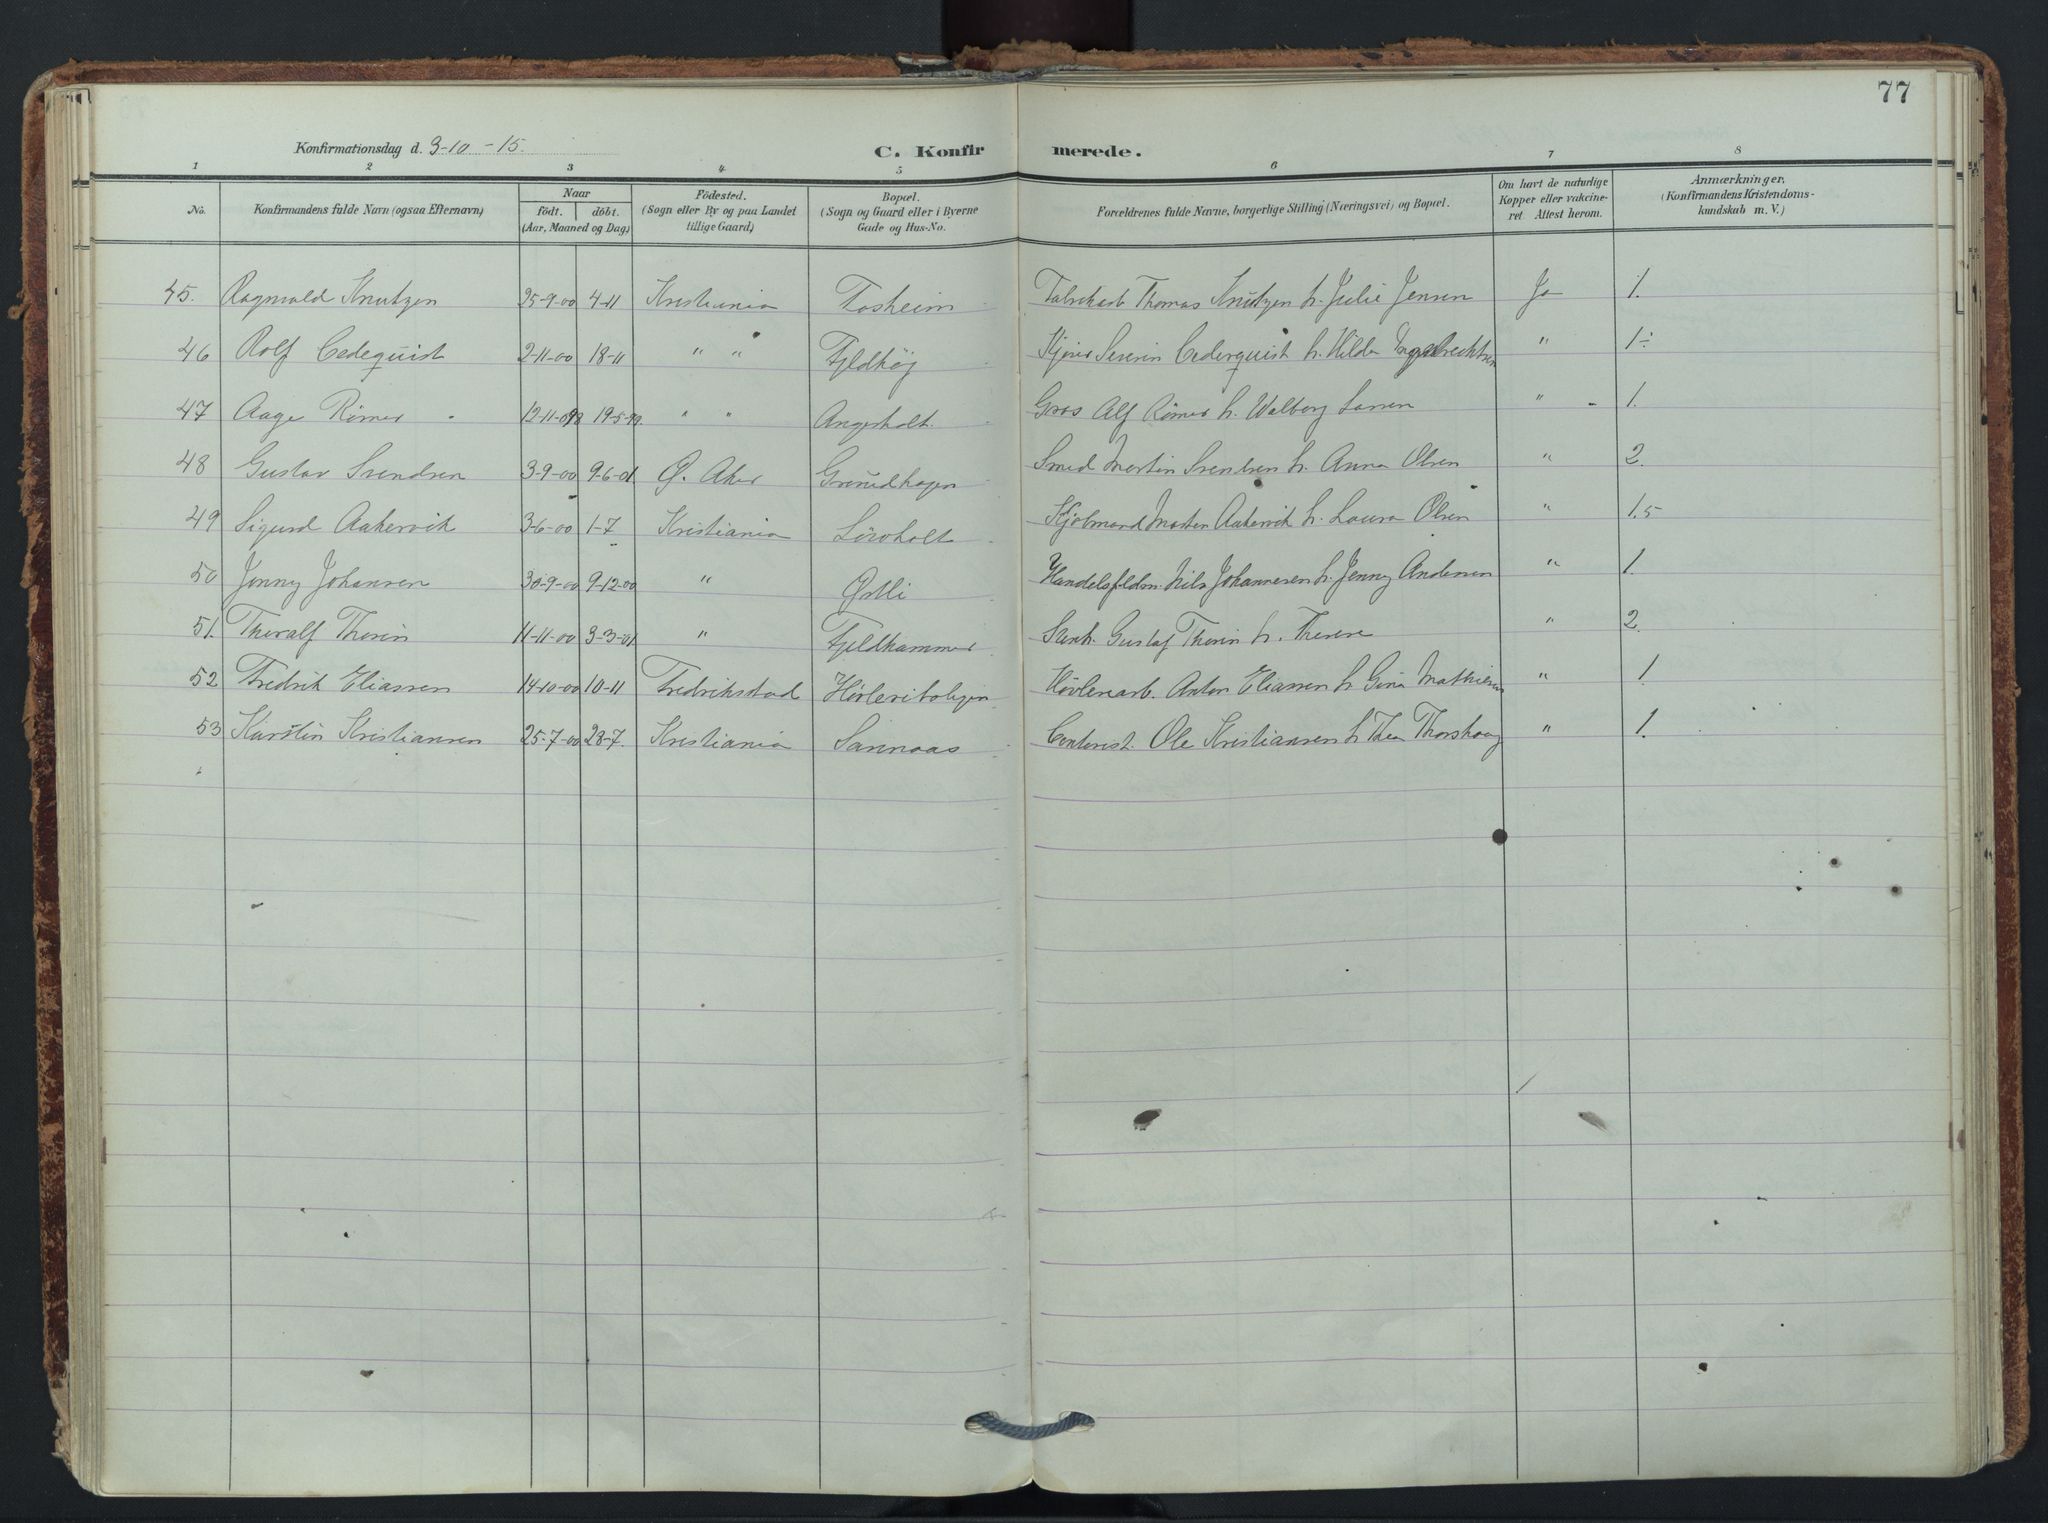 77
Konfirmationsdag d. 3-10-15.
C. Konfirmerede.
1 2 3 4 5 6 7 8
No. Konfirmandens fulde Navn (ogsaa Efternavn) Naar födt. döbt. (Aar, Maaned og Dag) Födested. (Sogn eller By og paa Landet tillige Gaard) Bopæl. (Sogn og Gaard eller i Byerne Gade og Hus-No. Forældrenes fulde Navne, borgerlige Stilling (Næringsvei) og Bopæl. Om havt de naturlige Kopper eller vakcineret. Attest herom. Anmærkninger. (Konfirmandens Kristendomskundskab m. V.)
45. Ragnvald Knutzen 25-9-00 4-11 Kristiania Fosheim Thomas Knutzen h. Julie Jensen Ja 1.
46 Rolf Cedequist 2-11-00 18-11 " " Fjeldhøj Severin Cederquist h. Hilda " 1÷
47 Aage Rømer 12-11-98 19-5-99. " " Angerholt. Gros Alf Rømer h. Walborg " 1.
48 Gustav Svendsen 3-9-00 9-6-01 Ø. Aker Smed Martin Svensen h. Anna Olsen " 2.
49 Sigurd Aakervik 3-6-00 1-7 Kristiania Aakervik h. Laura Olsen " 1.5
50 Jenny Johansen 30-9-00 9-12-00 " Østli Nils Johannesen h. Jenny Andersen " 1.
51. Thoralf Thorin 11-11-00 3-3-01 " Fjeldhammer Gustaf Thorin h. Therese " 2.
52 Fredrik Eliassen 14-10-00 10-11 Fredriksstad Høvleriboligen Høvleriarb. Anton Eliassen h Gina Mathiesen " 1.
53 Karstin Kristiansen 25-7-00 28-7. Kristiania Sannaas Contorist. Ole Kristiansen h Thea Thorshaug " 1.